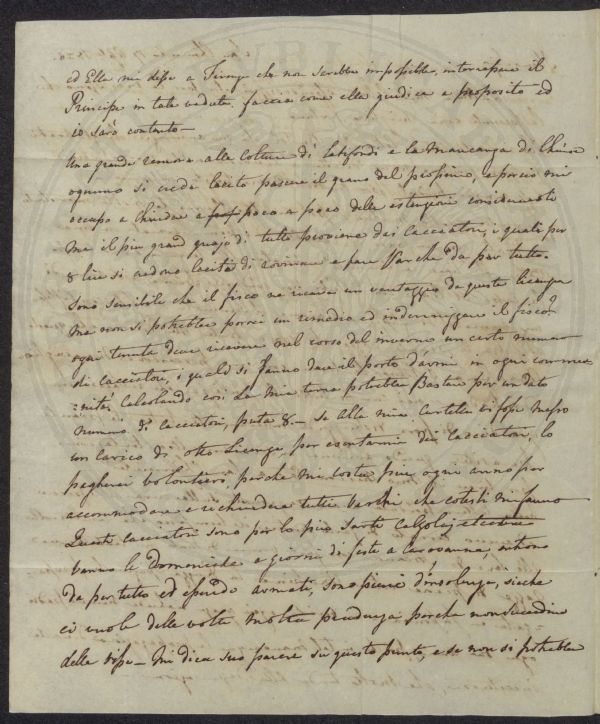 ed Ella mi disse a Firenze che non sarebbe impossibile, interessare il
Principe in tale veduta, faccia come ella giudica a proposito ed
io sarò contento —
Una grande remora alle colture di Latifondi e la Mancanza di Chiuse
ognuno si crede lecito pascere il grano del prossimo, e perciò mi
occupo a chiudere a poco a poco delle estenzioni considerevoli
Ma il più grand guajo di tutto proviene dai Cacciatori, i quali per
8 lire si credono lecito di rovinare e fare Varchi da per tutto.
Sono sensibile che il fisco ne ricava un vantaggio da queste licenze
Ma non si potrebbe porvi un rimedio ed indennizzare il fisco?
ogni tenuta deve ricevere nel corso del inverno un certo numero
di cacciatori, i quali si fanno dare il porto d'armi in ogni commu-
=nità, Calcolando così La mia terra potrebbe Bastare per un dato
numero di Cacciatori, puta 8 — se alla mia Cartella vi fosse messo
un carico di otto Licenze per esentarmi dei cacciatori, lo
pagherei volontieri, perche mi costa più ogni anno per
accommodare e richiudere tutti Varchi che cotesti mi fanno
Questi cacciatori sono per lo più Sarti Calzolaj
vanno le Domeniche e giorni di feste a carovanna, entrano
da per tutto ed essendo armati, sono pieni d'insolenza, sicche
ci vuole delle volte molta prudenza perche non succedino
delle risse — Mi dica suo parere su questo punto, e se non si potrebbe